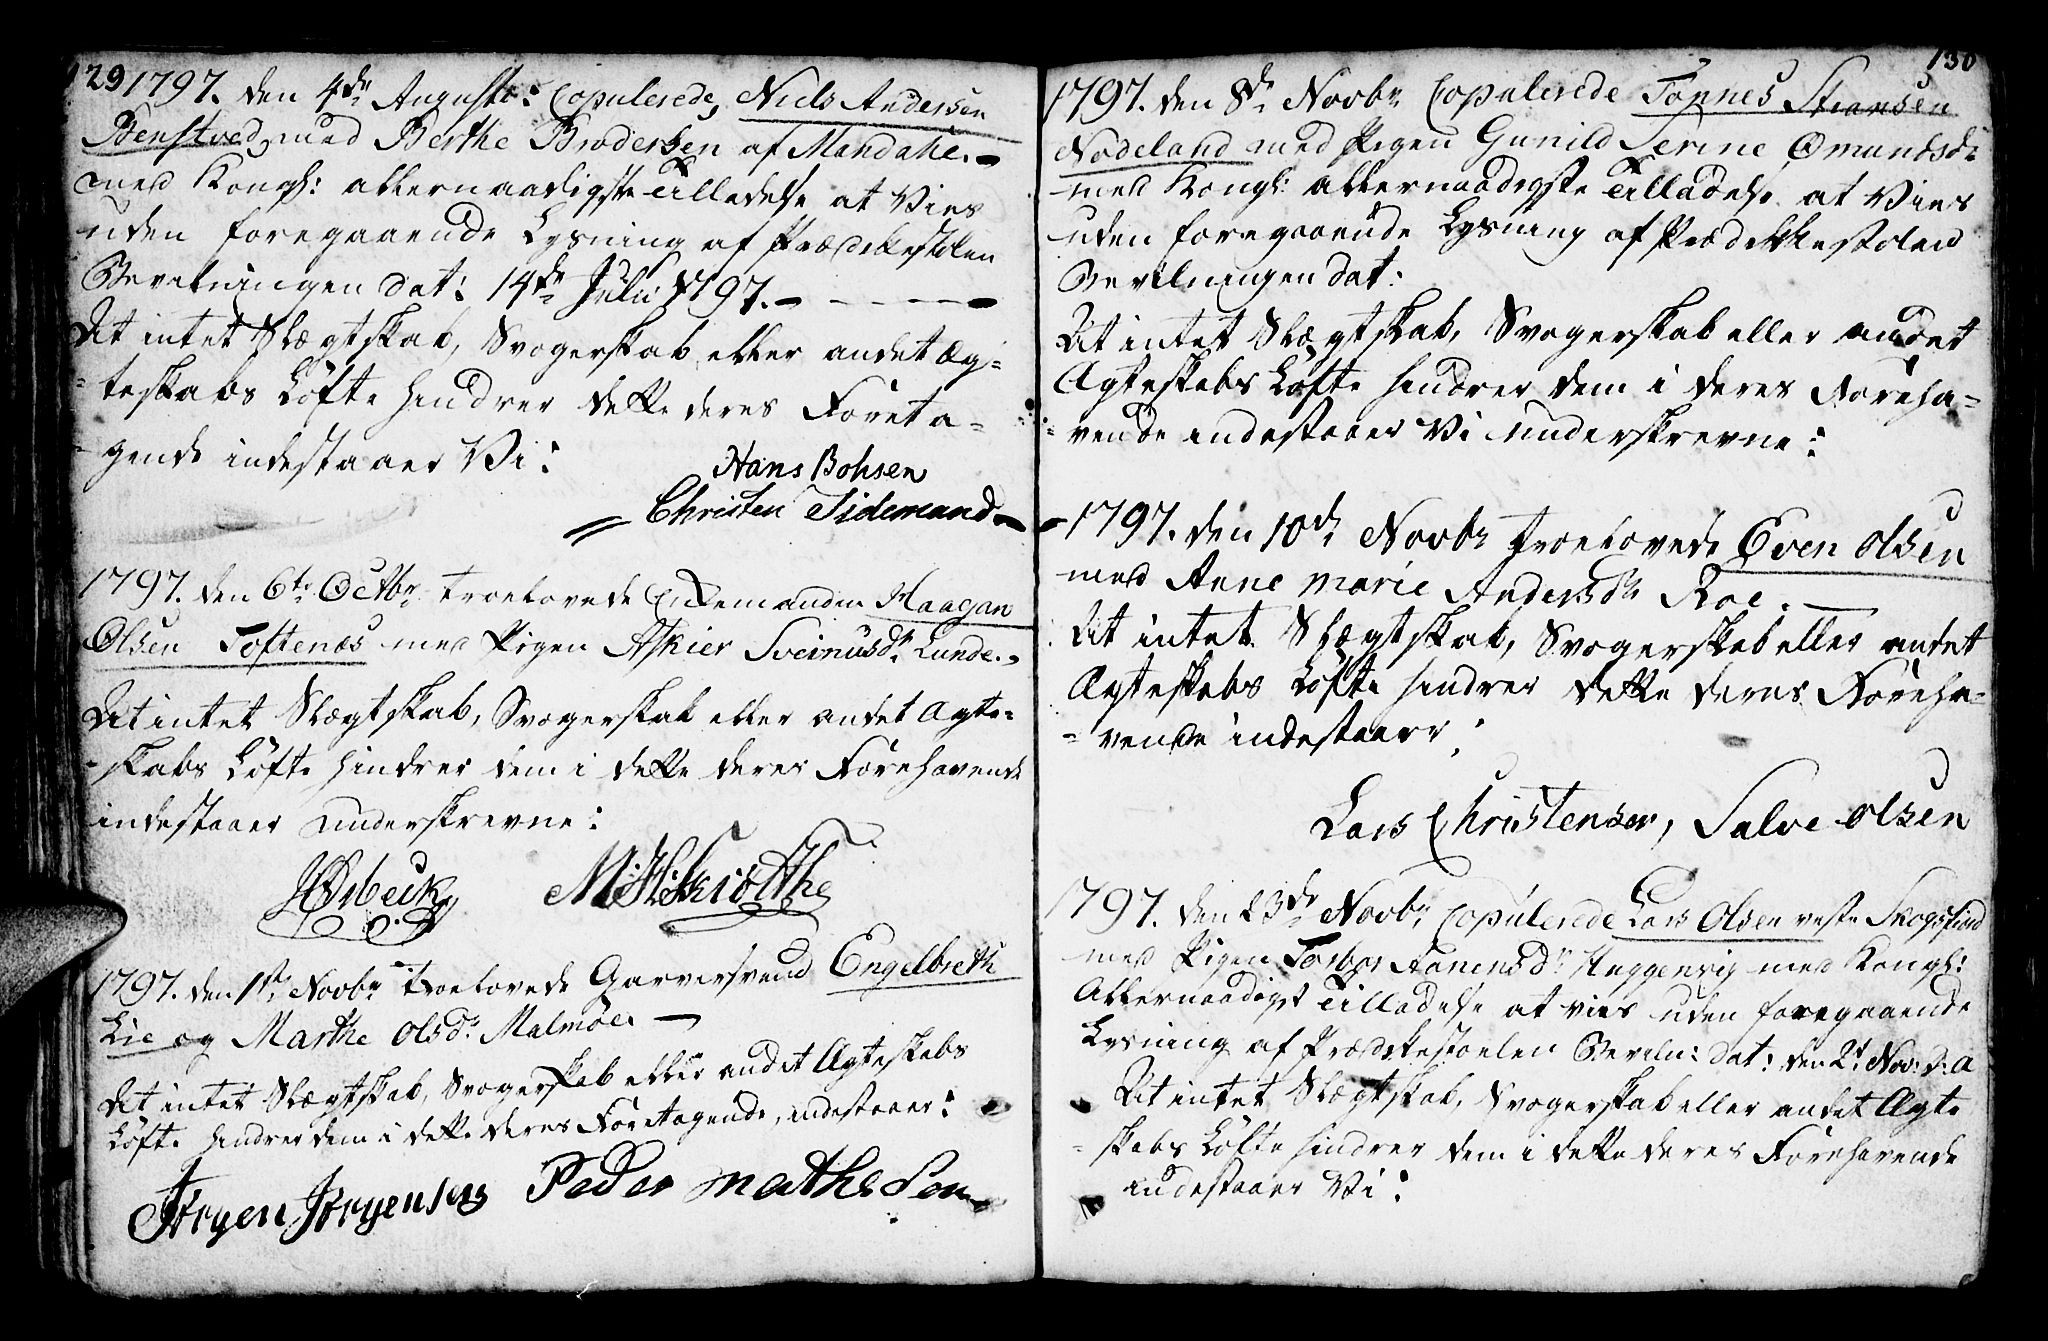 129
1797. den 4de Augusto: Copulerede, Niels Andersen
Benstved, med Berthe Brodersen af Mandahl.
med Kongl: allernaadigste Tilladelse at Vies
uden foregaaende Lysning af Prædekestolen
Bevilningen dat: 14de Julii 1797.
At intet Slægtskab, Svogerskab eller andet Æg-
teskabs Löfte hindrer dette deres Foreta-
gende indestaaer Vi:
Hans Bohsen
Christen Sidemand
1797. den 6te Octbr. troelovede Enkemanden Haagan
Olsen Toftenæs med Pigen Askier Sveinusdr. Lunde.
At intet Slægtskab, Svogerskab eller andet Ægte-
skabs Löfte hindrer dem i dette deres Forehavende
indestaaer underskrevne:
1797. den 1ste Novbr troelovede Garversvend Engelbreth
Lie og Marthe Olsdr. Malmöe.
At intet Slægtskab, Svogerskab eller andet Ægteskabs
Löfte hindrer dem i dette deres Foretagende, indestaaer:
Jörgen Jörgensen Peder Mathesen
130
1797. den 8de Novbr Copulerede Tönnes
Nodeland med Pigen Gunild Serine Omundsdr
med Kongl: allernaadigste Tilladelse at Vies
uden foregaaende Lysning af Prædikkestolen
Bevilningen dat:
At intet Slægtskab, Svogerskab eller andet
Ægteskabs Löfte hindrer dem i deres Foreha-
vende indestaaer Vi underskrevne:
1797. den 10de Novbr troelovede Even Olsen
med Anne Marie Andersdr Roe.
At intet Slægtskab, Svogerskab eller andet
Ægteskabs Löfte hindrer dette deres Foreha-
vende indestaaer:
Lars Christensen, Salve Olsen
1797. den 23de Novbr Copulerede Lars Olsen veste Skogsfiord
med Pigen Torbor Aanensdr Heggenvig med Kongl:
Allernaadigst Tilladelse at vies uden foregaaende
Lysning af Prædikestoelen Beviln: dat: den 2t Nov: d: A
At intet Slægtskab, Svogerskab eller andet Ægte
skabs Löfte hindrer dem i dette deres Forehavende
indestaaer Vi: